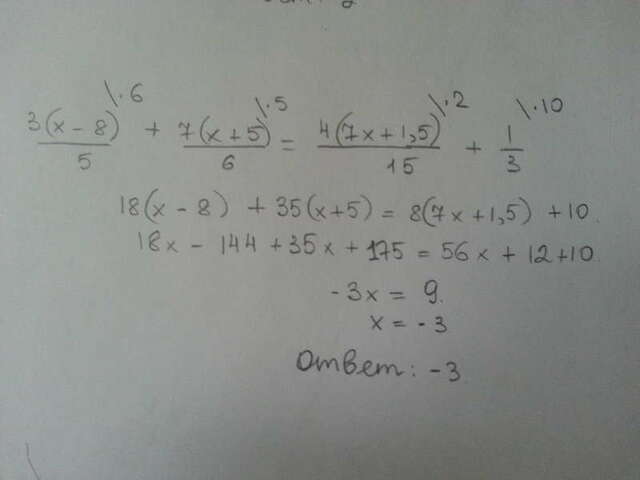 \·6 \·5 \·2 \·10
3(x - 8)/5 + 7(x + 5)/6 = 4(7x + 1,5)/15 + 1/3
18(x - 8) + 35(x + 5) = 8(7x + 1,5) + 10.
18x - 144 + 35x + 175 = 56x + 12 + 10
-3x = 9.
x = -3
Ответ: -3